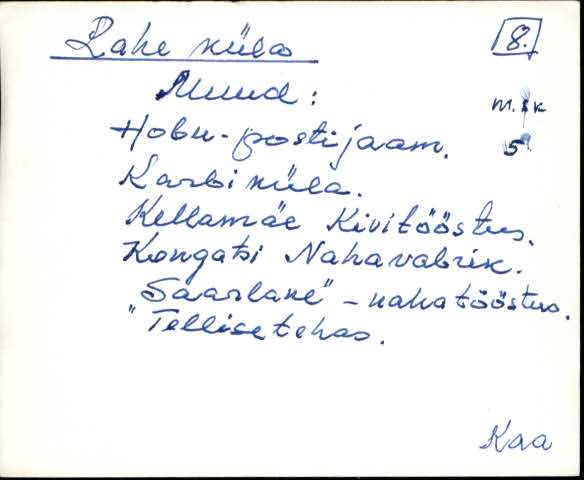 Rahe küla
8.
Muud:
m. sk
Hobu-postijaam.
5
Karbi küla.
Kellamäe Kivitööstus.
Kongatsi Nahavabrik.
"Saarlane" - nahatööstus.
"Tellisetehas.
Kaa